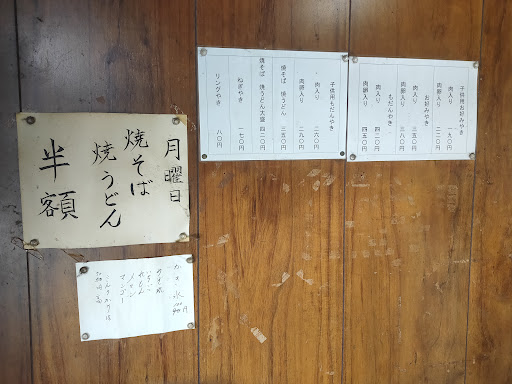 子供用お好みやき
肉入り 一九〇円
肉卵入り 二二〇円
お好みやき
肉入り 三五〇円
肉卵入り 三八〇円
もだんやき
肉入り 四二〇円
肉卵入り 四五〇円
子供用もだんやき
肉入り 二六〇円
肉卵入り 二九〇円
焼そば 焼うどん 三五〇円
焼そば 焼うどん大盛 四二〇円
ねぎやき 一七〇円
リングやき 八〇円
月曜日
焼そば
焼うどん
半額
かき氷
いちご
れもん
メロン
マンゴー